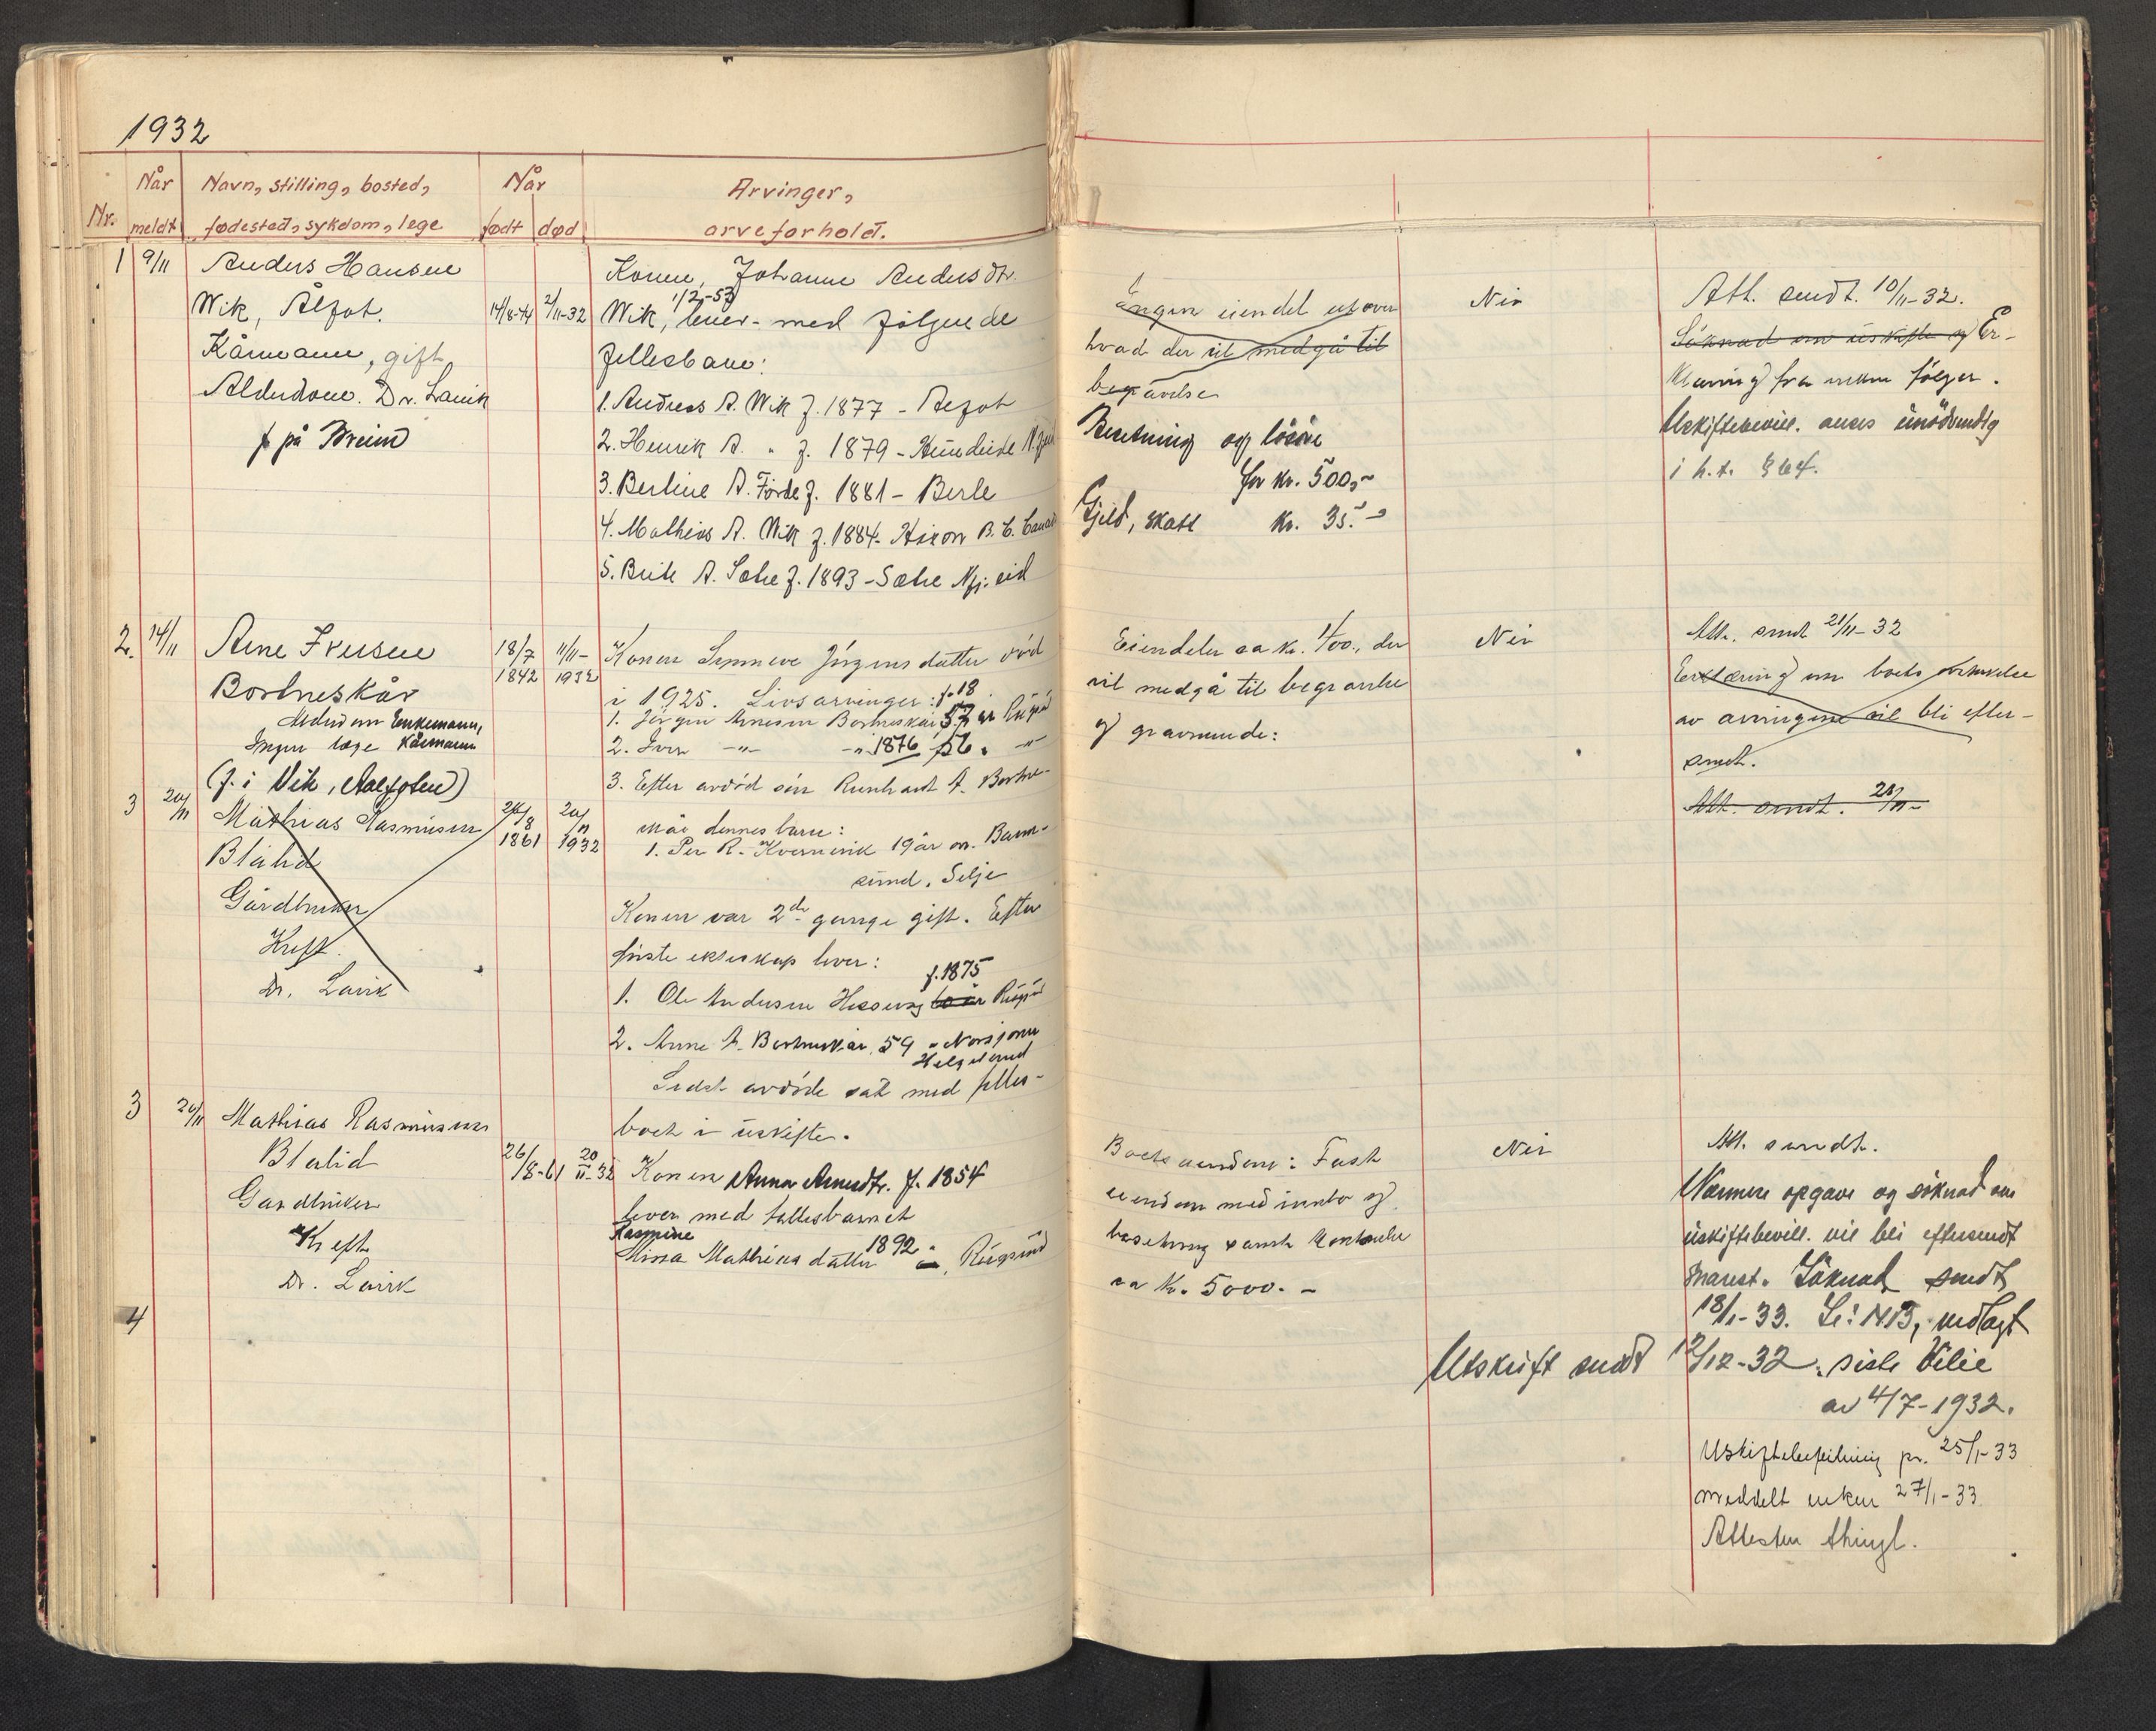 1932
Nr.
Når
meldt
Navn, stilling, bosted,
fødested, sykdom, lege
Når
født død
Arvinger,
arveforhold.
1 9/11 Anders Hansen
Wik, Ålfot.
Kårmann, gift
Alderdom. Dr. Lavik
f. på Breim
14/8-44 2/11-32
Konen, Johanne Andersdtr.
1/2-53
Wik, lever - med følgende
fellesbarn:
1. Andreas A. Wik f. 1877 - Aefot
2. Henrik A. " f. 1879 - Hundeide N.fjord
3. Berline A. Förde f. 1881 - Berle
4. Mathias A. Wik f. 1884. Hixon B. C. Canada
5. Brite A. Sætre f. 1893 - Sætre Nfj. eid
ingen eiendel utover
hvad der vil medgå til
begravelse
Besetning og lösöre
for kr. 500,-
Gjeld, skatt kr. 35.-
Nei
Att. sendt. 10/11-32.
Söknad om uskifte og Er-
klæring fra enken følger.
Uskiftebevill. anses unödvendig
i h.t. § 64.
2. 14/11 Arne Iversen
Bortneskår
Alderdom Enkemann,
Ingen læge Kårmann
(f. i Vik, Aalfoten)
18/7 1842
11/11- 1932
Konen Synneve Jörgensdatter död
i 1925. Livsarvinger:
1. Jörgen Arnesen Bortneskår 57 år Rugsund
2. Iver -"- -"- 1876 56 " -"
3. Efter avdöd sön Reinhardt A. Bortne-
skår dennes barn:
1. Per R. Kvernevik 19 år ar. Barm-
sund, Selje
Konen var 2de gange gift. Efter
förste ekteskap lever:
f. 1875
1. Ole Andersen Hessevåg 60 år Rugsund
2. Anne A. Bortneskår, 59 " Nesjonen
Helgeland
Sidst avdöde sat med felles-
boet i uskifte.
Eiendeler ca kr. 400., der
vil medgå til begravelse
og gravminde:
Nei
Att. sendt 21/11-32
Erklæring om boets overtakelse
av arvingene vil bli efter-
sendt.
Att. sendt. 21/11-
3 20/11 Mathias Rasmussen
Blålid
Gårdbruker
Kreft.
Dr. Lavik
26/8 1861
20/11 1932
3 20/11 Mathias Rasmussen
Blålid
Gardbruker
Kreft
Dr. Lavik
26/8-61 20/11-32
Konen Anna Arnesdtr. f. 1854
lever med fellesbarnet
Rasmine
Mina Mathiasdatter 1892 , Rugsund
Boets eiendom: Fast
eiendom med innbo og
besetning samt kontanter
ca kr. 5000.-
Nei
Att. sendt.
Nærmere opgave og söknad om
uskiftebevill. vil bli eftersendt
snarest. Söknad sendt
18/1-33. Se! NB, vedlagt
Utskrift sendt 12/12-32. siste Vilie
av 4/7-1932.
Uskiftebevilling pr. 25/1-33
meddelt enken 27/1-33
Attesten thingl.
4